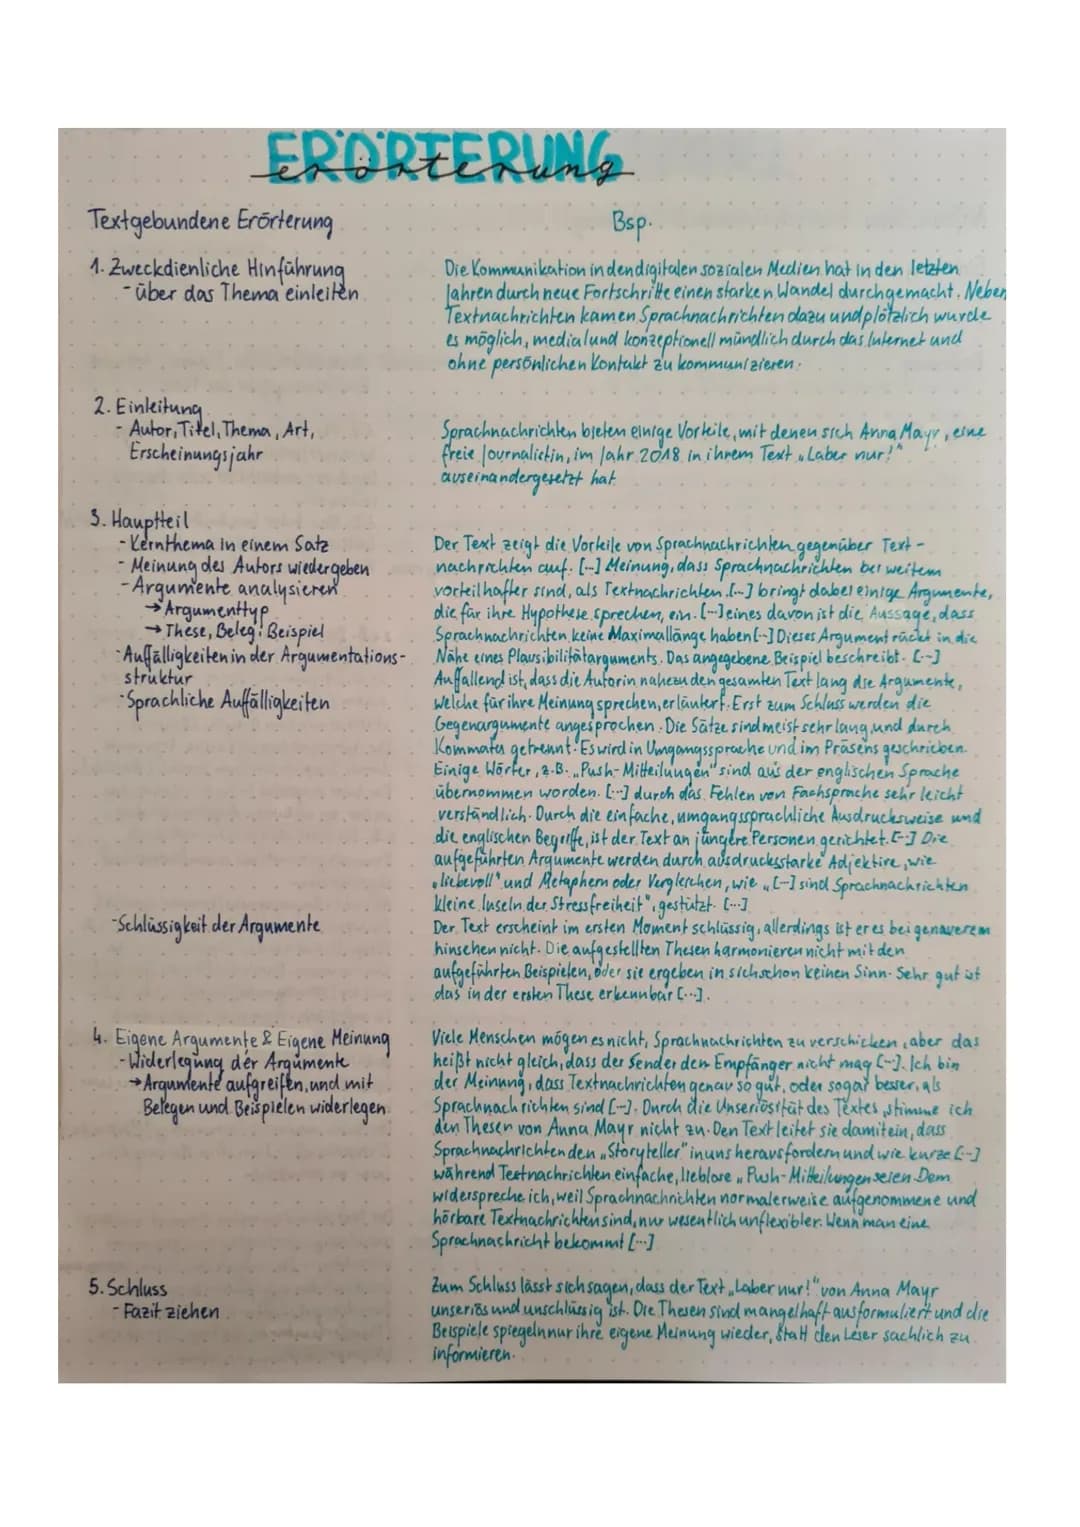 ERÖRTERUNG
erörterung
Textgebundene Erörterung
Bsp.
1. Zweckdienliche Hinführung
- über das Thema einleiten
Die Kommunikation in den digitalen sozialen Medien hat in den letzten
Jahren durch neue Fortschritte einen starken Wandel durchgemacht. Neben
Textnachrichten kamen Sprachnachrichten dazu und plötzlich wurde
es möglich, medial und konzeptionell mündlich durch das Internet und
ohne persönlichen Kontakt zu kommunizieren.
2. Einleitung
- Autor, Titel, Thema, Art,
Erscheinungsjahr
Sprachnachrichten bieten einige Vorteile, mit denen sich Anna Mayr, eine
freie Journalistin, im Jahr 2018 in ihrem Text „Laber nur!"
auseinandergesetzt hat
3. Hauptteil
- Kernthema in einem Satz
- Meinung des Autors wiedergeben
- Argumente analysieren
→ Argumenttyp
→ These, Beleg, Beispiel
- Auffälligkeiten in der Argumentations-
struktur
- Sprachliche Auffälligkeiten
Der Text zeigt die Vorteile von Sprachnachrichten gegenüber Text-
nachrichten auf. [...] Meinung, dass Sprachnachrichten bei weitem
vorteilhafter sind, als Textnachrichten. [...] bringt dabei einige Argumente,
die für ihre Hypothese sprechen, ein. [...] eines davon ist die Aussage, dass
Sprachnachrichten keine Maximallänge haben [...] Dieses Argument rückt in die
Nähe eines Plausibilitätarguments. Das angegebene Beispiel beschreibt. [...]
Auffallend ist, dass die Autorin nahezu den gesamten Text lang die Argumente,
welche für ihre Meinung sprechen, erläutert. Erst zum Schluss werden die
Gegenargumente angesprochen. Die Sätze sind meist sehr lang und durch
Kommata getrennt. Es wird in Umgangssprache und im Präsens geschrieben.
Einige Wörter, z.B. „Push-Mitteilungen" sind aus der englischen Sprache
übernommen worden. [...] durch das Fehlen von Fachsprache sehr leicht
verständlich. Durch die einfache, umgangssprachliche Ausdrucksweise und
die englischen Begriffe, ist der Text an jüngere Personen gerichtet. [...] Die
aufgeführten Argumente werden durch ausdrucksstarke Adjektive, wie
„liebevoll" und Metaphern oder Vergleichen, wie „[...] sind Sprachnachrichten
kleine Inseln der Stressfreiheit", gestützt. [...]
- Schlüssigkeit der Argumente
Der Text erscheint im ersten Moment schlüssig, allerdings ist er es bei genauerem
hinsehen nicht. Die aufgestellten Thesen harmonieren nicht mit den
aufgeführten Beispielen, oder sie ergeben in sich schon keinen Sinn. Sehr gut ist
das in der ersten These erkennbar [...].
4. Eigene Argumente & Eigene Meinung
- Widerlegung der Argumente
→ Argumente aufgreifen, und mit
Belegen und Beispielen widerlegen
Viele Menschen mögen es nicht, Sprachnachrichten zu verschicken, aber das
heißt nicht gleich, dass der Sender den Empfänger nicht mag [...]. Ich bin
der Meinung, dass Textnachrichten genau so gut, oder sogar besser, als
Sprachnachrichten sind [...]. Durch die Unseriösität des Textes, stimme ich
den Thesen von Anna Mayr nicht zu. Den Text leitet sie damit ein, dass
Sprachnachrichten den „Storyteller" in uns herausfordern und wie kurze [...]
während Textnachrichten einfache, lieblose „Push-Mitteilungen seien. Dem
widerspreche ich, weil Sprachnachrichten normalerweise aufgenommene und
hörbare Textnachrichten sind, nur wesentlich unflexibler. Wenn man eine
Sprachnachricht bekommt [...]
5. Schluss
- Fazit ziehen
Zum Schluss lässt sich sagen, dass der Text „Laber nur!" von Anna Mayr
unseriös und unschlüssig ist. Die Thesen sind mangelhaft ausformuliert und die
Beispiele spiegeln nur ihre eigene Meinung wieder, statt den Leser sachlich zu
informieren.